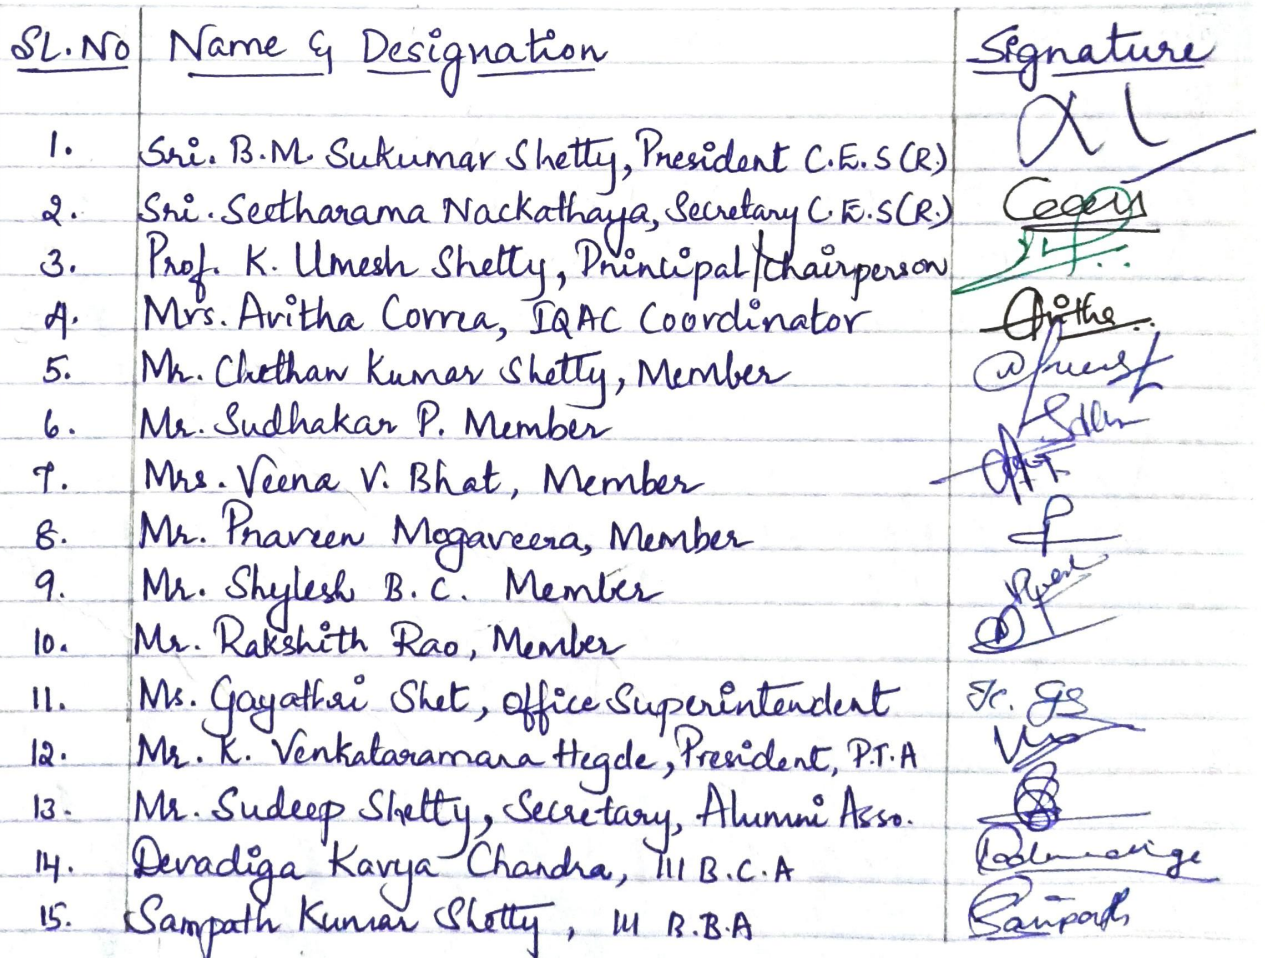 SL.No Name & Designation Signature
1. Sri. B.M. Sukumar Shetty, President C.E.S (R.)
2. Sri. Seetharama Nackathaya, Secretary C.E.S (R.)
3. Prof. K. Umesh Shetty, Principal/chairperson
4. Mrs. Avitha Correa, IQAC Coordinator Avitha
5. Mr. Chethan Kumar Shetty, Member
6. Mr. Sudhakar P. Member
7. Mrs. Veena V. Bhat, Member
8. Mr. Praveen Mogaveera, Member
9. Mr. Shylesh B.C. Member
10. Mr. Rakshith Rao, Member
11. Ms. Gayathri Shet, office Superintendent
12. Mr. K. Venkataramana Hegde, President, P.T.A
13. Mr. Sudeep Shetty, Secretary, Alumni Asso.
14. Devadiga Kavya Chandra, III B.C.A
15. Sampath Kumar Shetty, III B.B.A Sampath